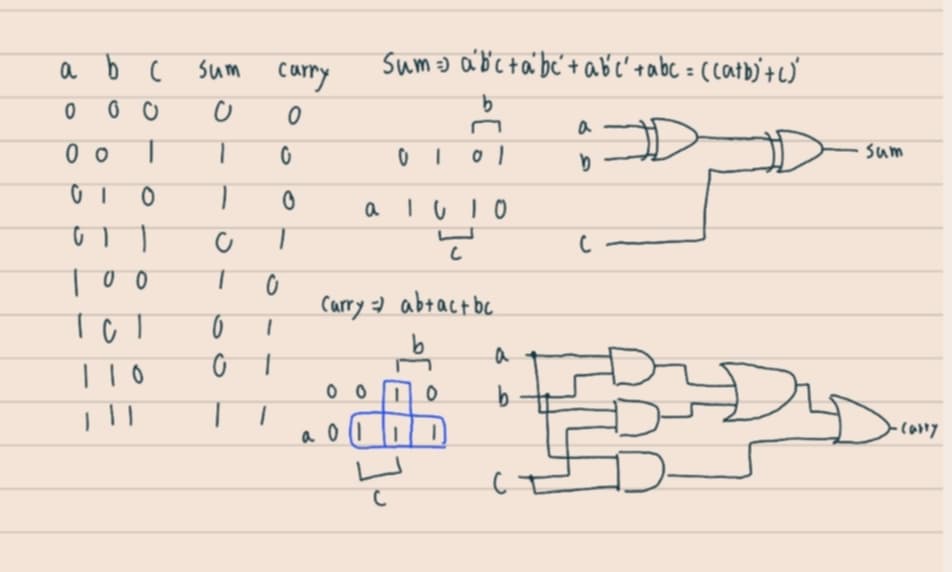 a b c sum carry
0 0 0 0 0
0 0 1 1 0
0 1 0 1 0
0 1 1 0 1
1 0 0 1 0
1 0 1 0 1
1 1 0 0 1
1 1 1 1 1
Sum => a'b'c + a'bc' + ab'c' + abc = ((a+b)' + c)'
b
0 1 0 1
a 1 0 1 0
c
a
b
c
sum
Carry => ab+ac+bc
b
0 0 1 0
a 0 1 1 1
c
a
b
c
carry